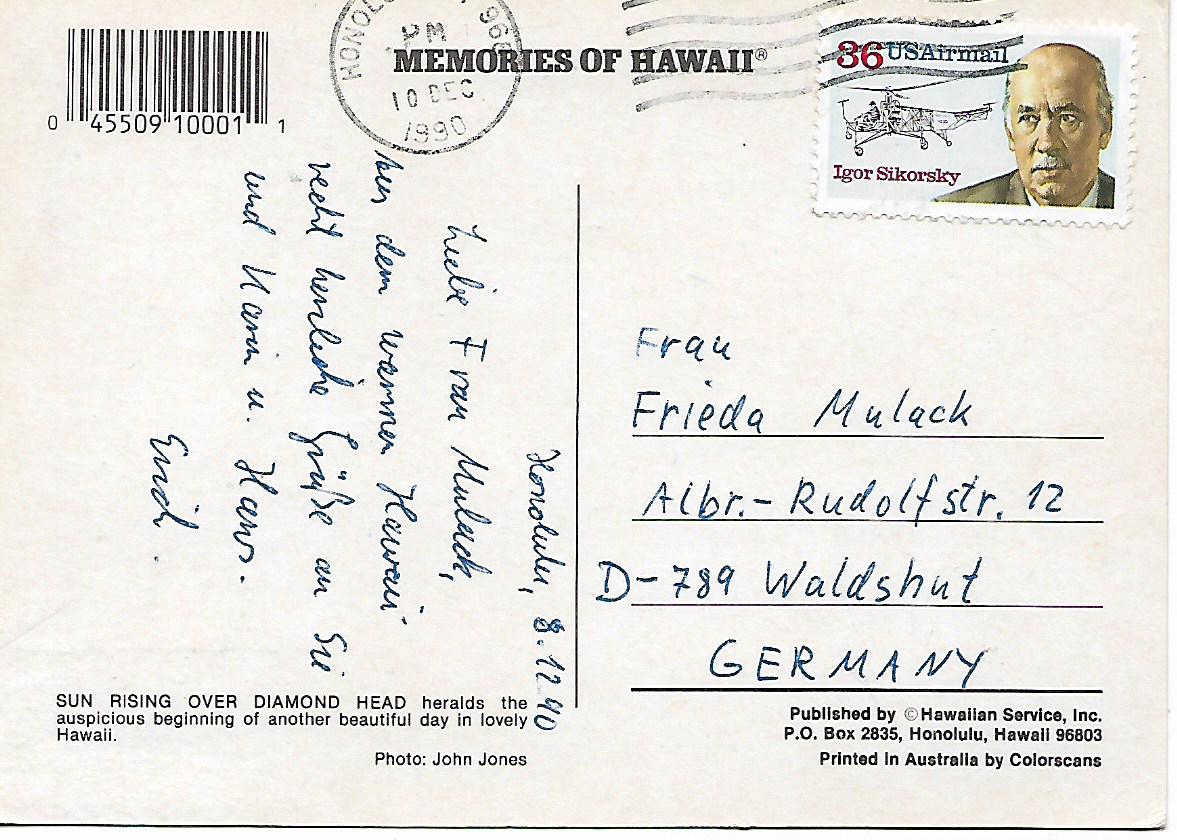 MEMORIES OF HAWAII®
0 45509 10001 1
PM
10 DEC
1990
36 USAirmail
Igor Sikorsky
Honolulu, 8.12.90
Liebe Frau Mulack,
Aus dem warmen Hawaii
recht herzliche Grüße an Sie
und Karin u. Hans.
Erich.
Frau
Frieda Mulack
Albr.-Rudolfstr. 12
D-789 Waldshut
GERMANY
SUN RISING OVER DIAMOND HEAD heralds the
auspicious beginning of another beautiful day in lovely
Hawaii.
Photo: John Jones
Published by © Hawaiian Service, Inc.
P.O. Box 2835, Honolulu, Hawaii 96803
Printed in Australia by Colorscans